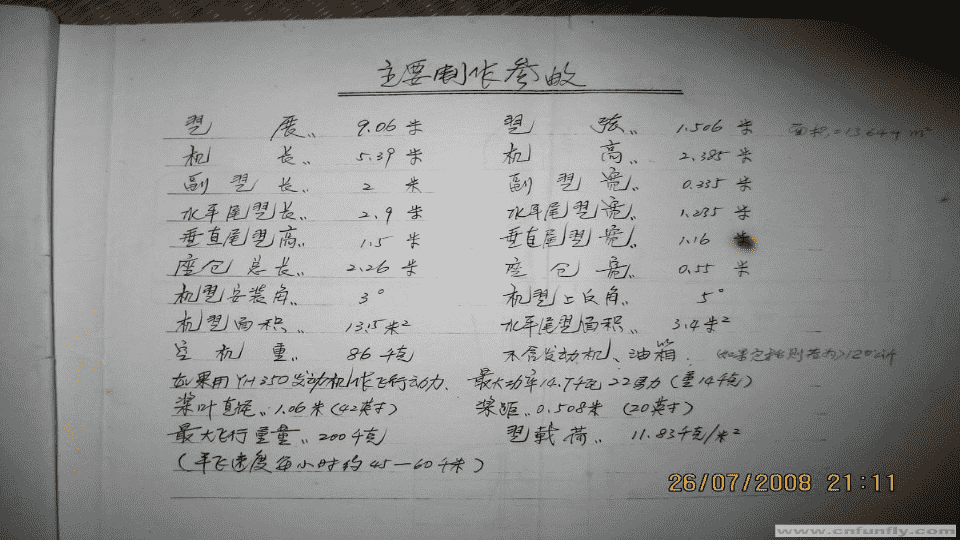 主要制作参数
翼 展〃 9.06 米 翼 弦〃 1.506 米 面积=13.644 m²
机 长〃 5.39 米 机 高〃 2.385 米
副翼长〃 2 米 副翼宽〃 0.235 米
水平尾翼长〃 2.9 米 水平尾翼宽〃 1.235 米
垂直尾翼高〃 1.5 米 垂直尾翼宽〃 1.16 米
座仓总长〃 2.26 米 座仓宽〃 0.55 米
机翼安装角〃 3° 机翼上反角〃 5°
机翼面积〃 13.5米² 水平尾翼面积〃 3.4米²
空机重〃 86千克 不含发动机、油箱.
如果用YH350发动机作飞行动力. 最大功率14.7千瓦22马力(重14千克)
桨叶直径〃 1.06米(42英寸) 桨距〃 0.508米 (20英寸)
最大飞行重量〃 200千克 翼载荷〃 11.83千克/米²
(平飞速度每小时约45—60千米)
26/07/2008 21:11
www.cnfunfly.com